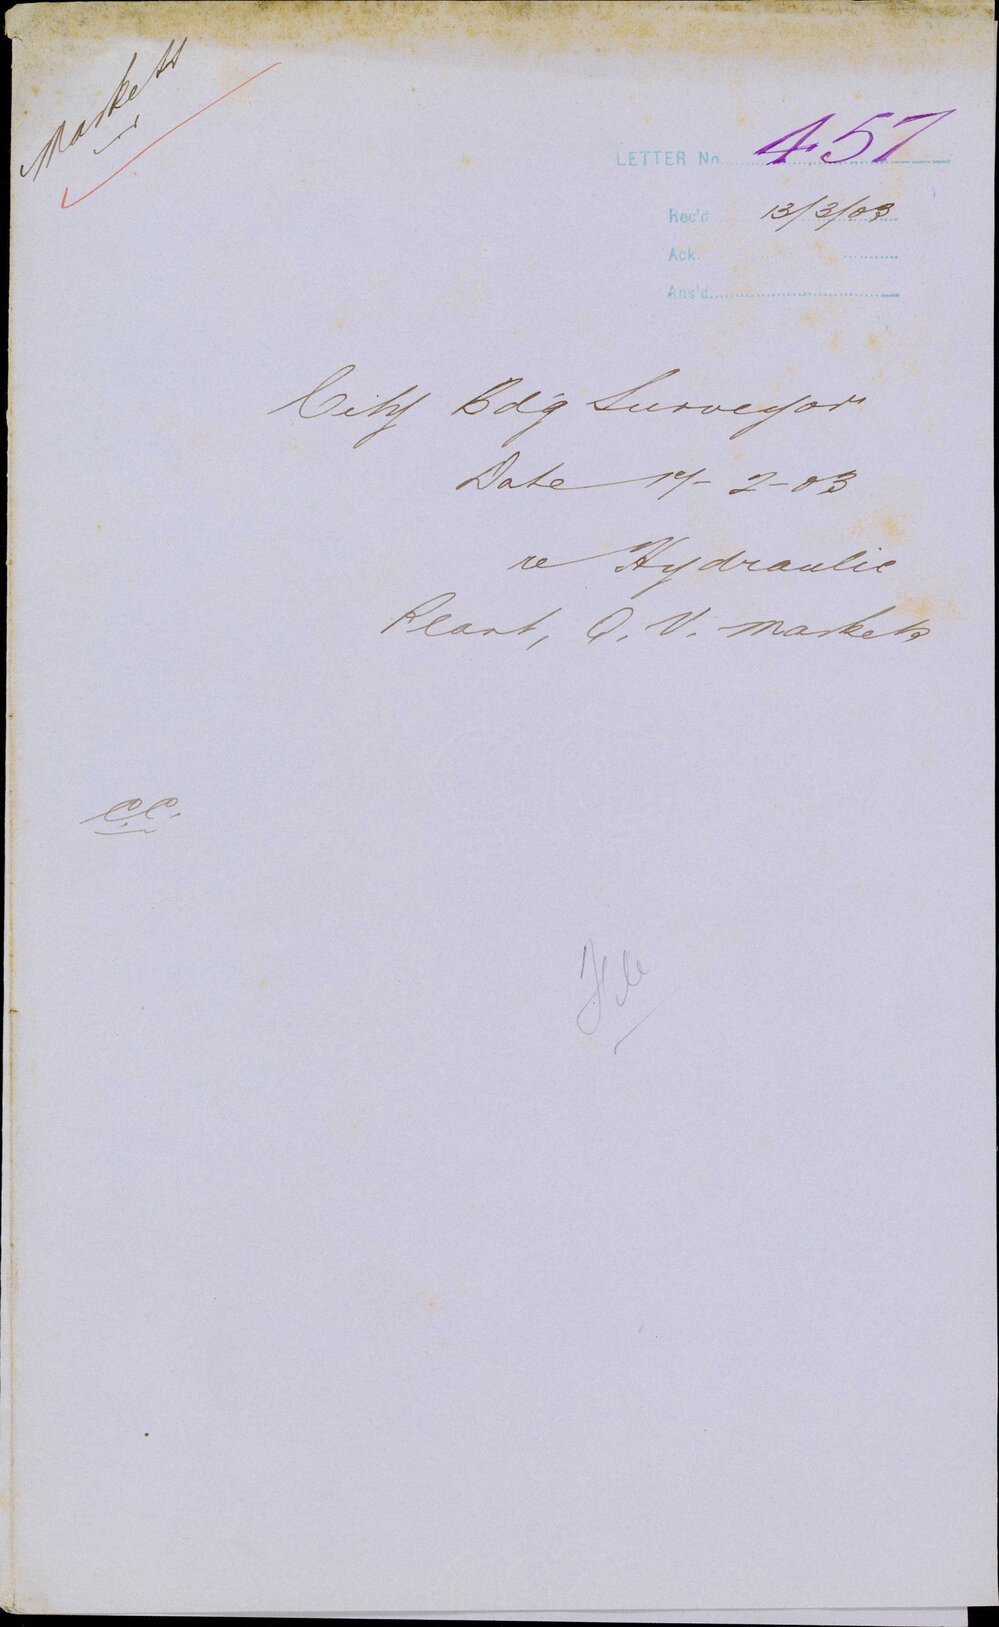 Markets
LETTER No. 457
Rec'd 13/3/03
Ack.
Ans'd.
City Bd'g Surveyor
Date 17-2-03
re Hydraulic
Plant, Q. V. Markets
C.C.
File